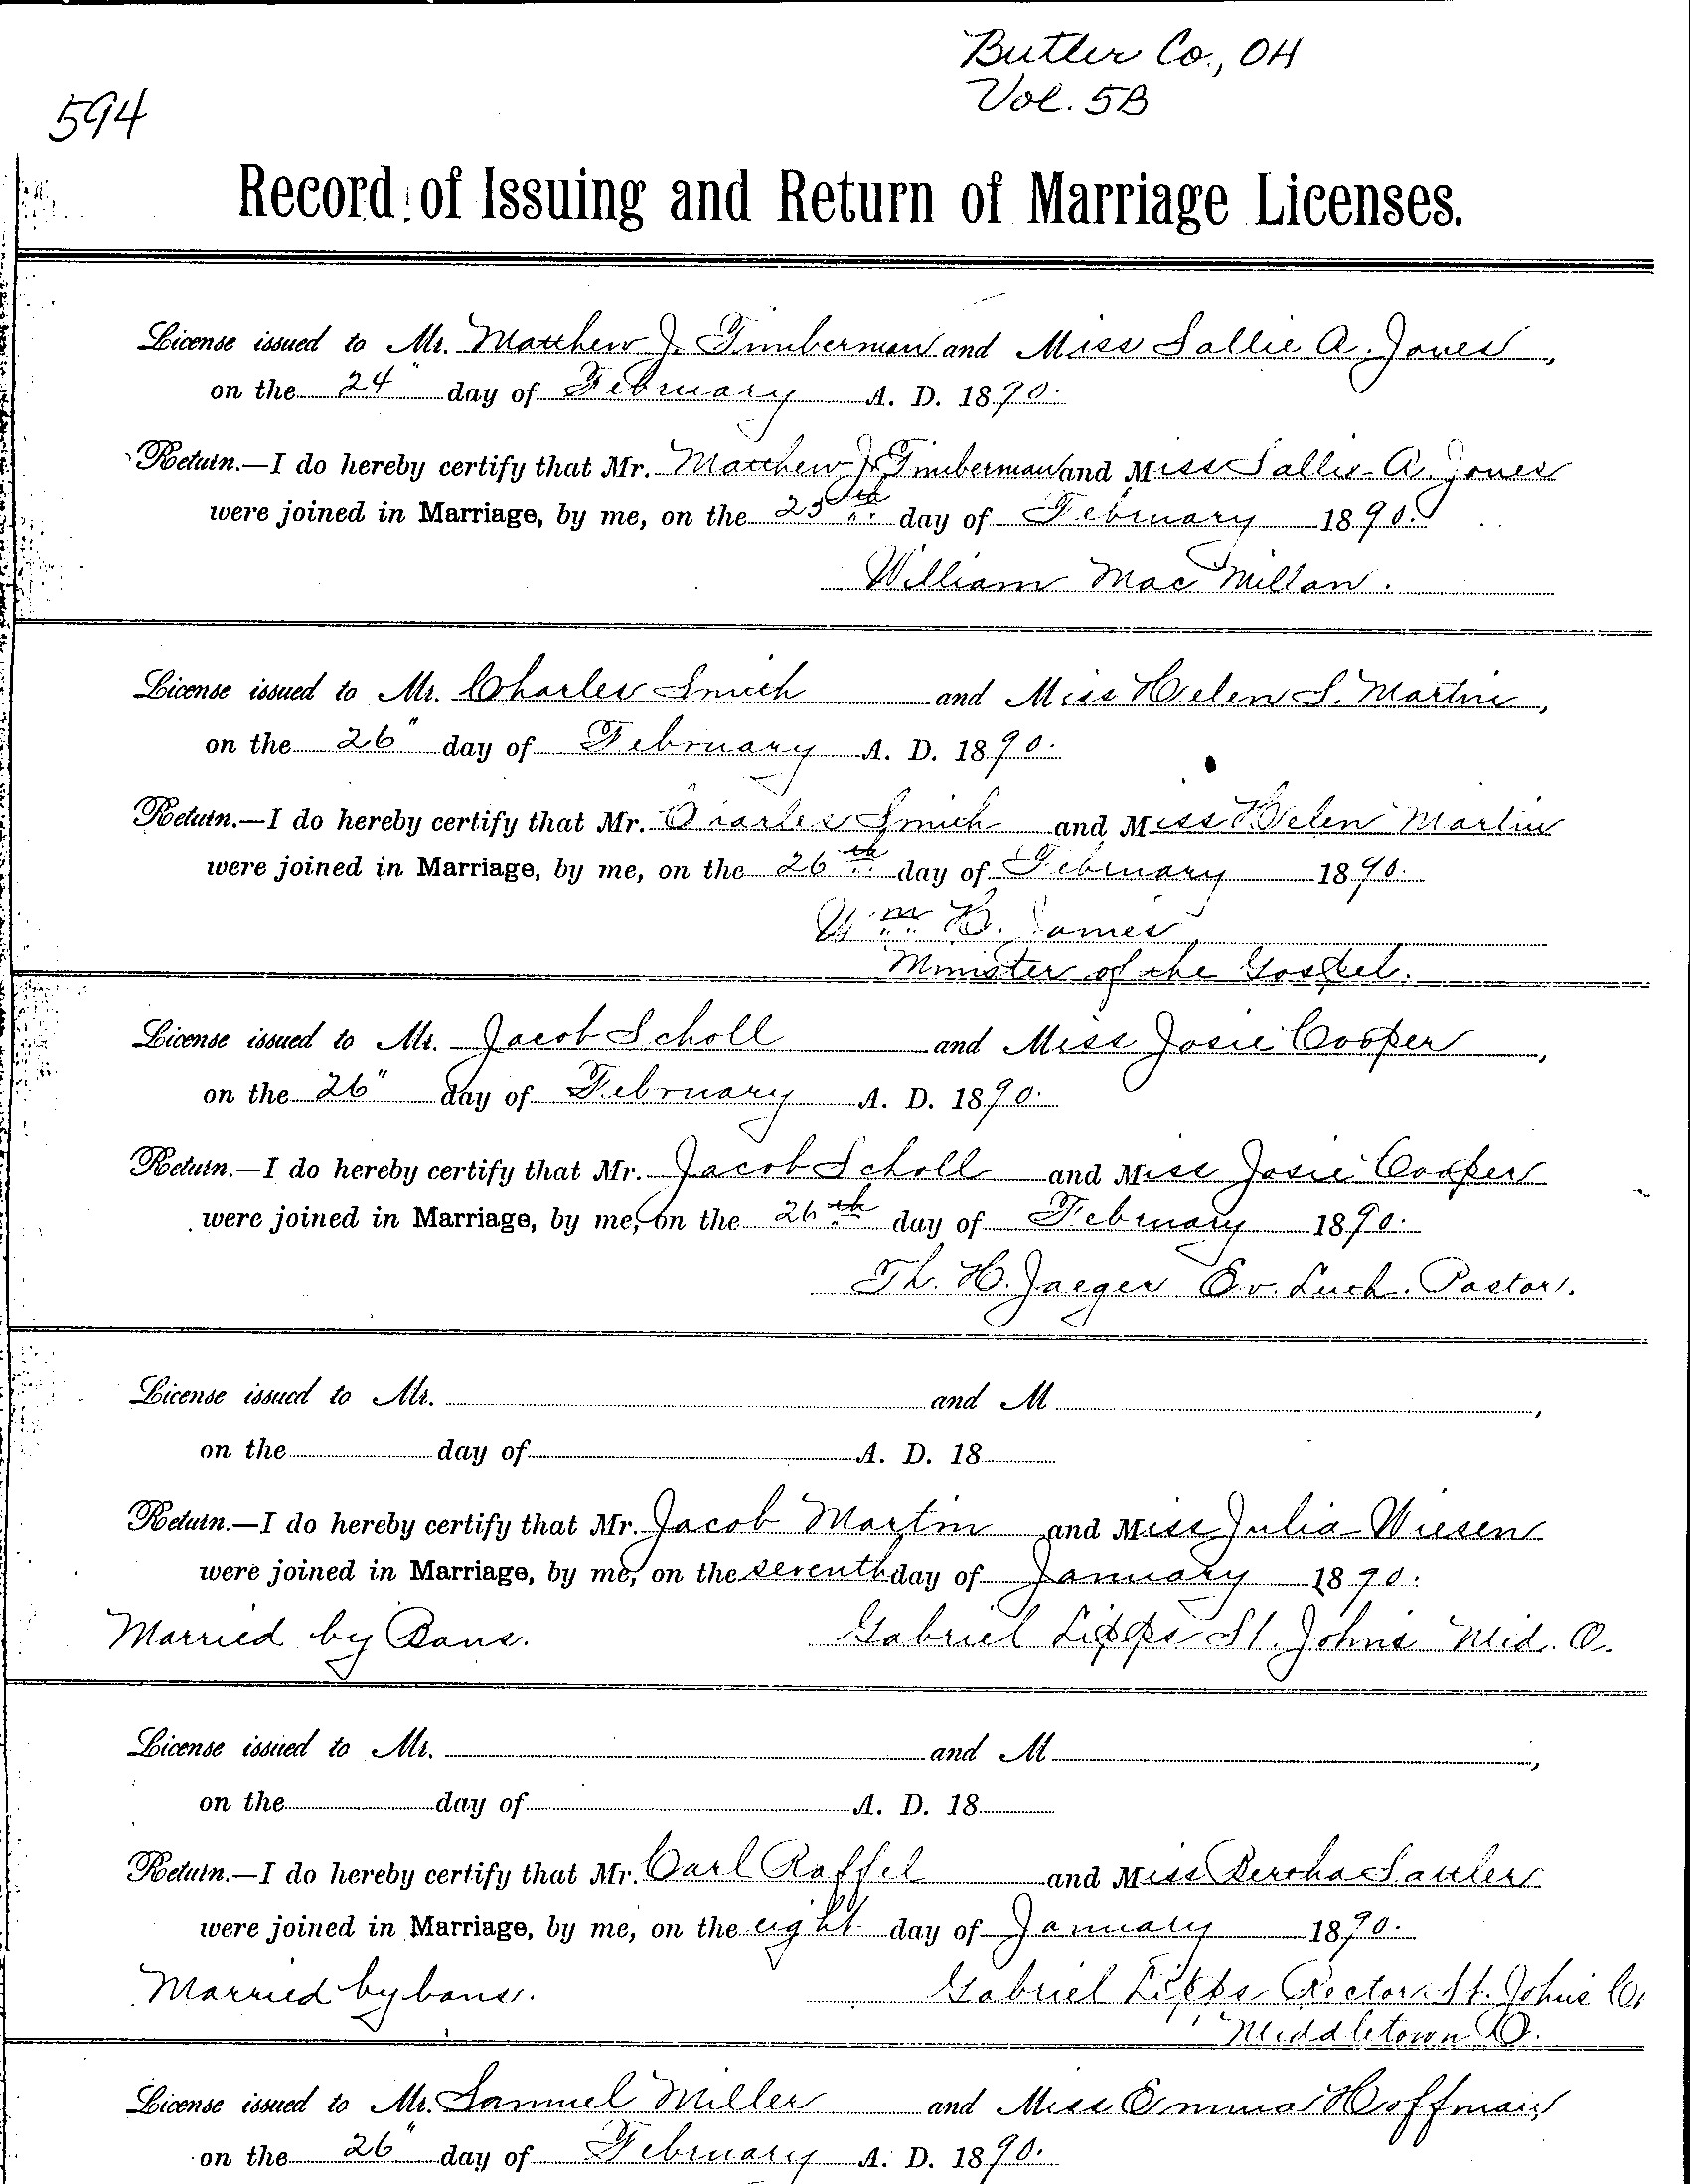 Butler Co., OH
Vol. 5B
594
Record of Issuing and Return of Marriage Licenses.
License issued to Mr. Matthew J. Timberman and Miss Sallie A. Jones,
on the 24" day of February A. D. 1890.
Return.—I do hereby certify that Mr. Matthew J. Timberman and Miss Sallie A. Jones
were joined in Marriage, by me, on the 25th day of February 1890.
William Mac Millan.
License issued to Mr. Charles Smith and Miss Helen S. Martin,
on the 26" day of February A. D. 1890.
Return.—I do hereby certify that Mr. Charles Smith and Miss Helen Martin
were joined in Marriage, by me, on the 26th day of February 1890.
Wm H. James
Minister of the Gospel.
License issued to Mr. Jacob Scholl and Miss Josie Cooper,
on the 26" day of February A. D. 1890.
Return.—I do hereby certify that Mr. Jacob Scholl and Miss Josie Cooper
were joined in Marriage, by me, on the 26th day of February 1890.
Th. H. Jaeger Ev. Luth. Pastor.
License issued to Mr. and M ,
on the day of A. D. 18
Return.—I do hereby certify that Mr. Jacob Martin and Miss Julia Wiesen
were joined in Marriage, by me, on the seventh day of January 1890.
Married by Bans. Gabriel Lipps St. Johns Mid. O.
License issued to Mr. and M ,
on the day of A. D. 18
Return.—I do hereby certify that Mr. Carl Raffel and Miss Bertha Sattler
were joined in Marriage, by me, on the eight day of January 1890.
Married by bans. Gabriel Lipps Rector St. Johns
Middletown O.
License issued to Mr. Samuel Miller and Miss Emma Hoffman
on the 26" day of February A. D. 1890.